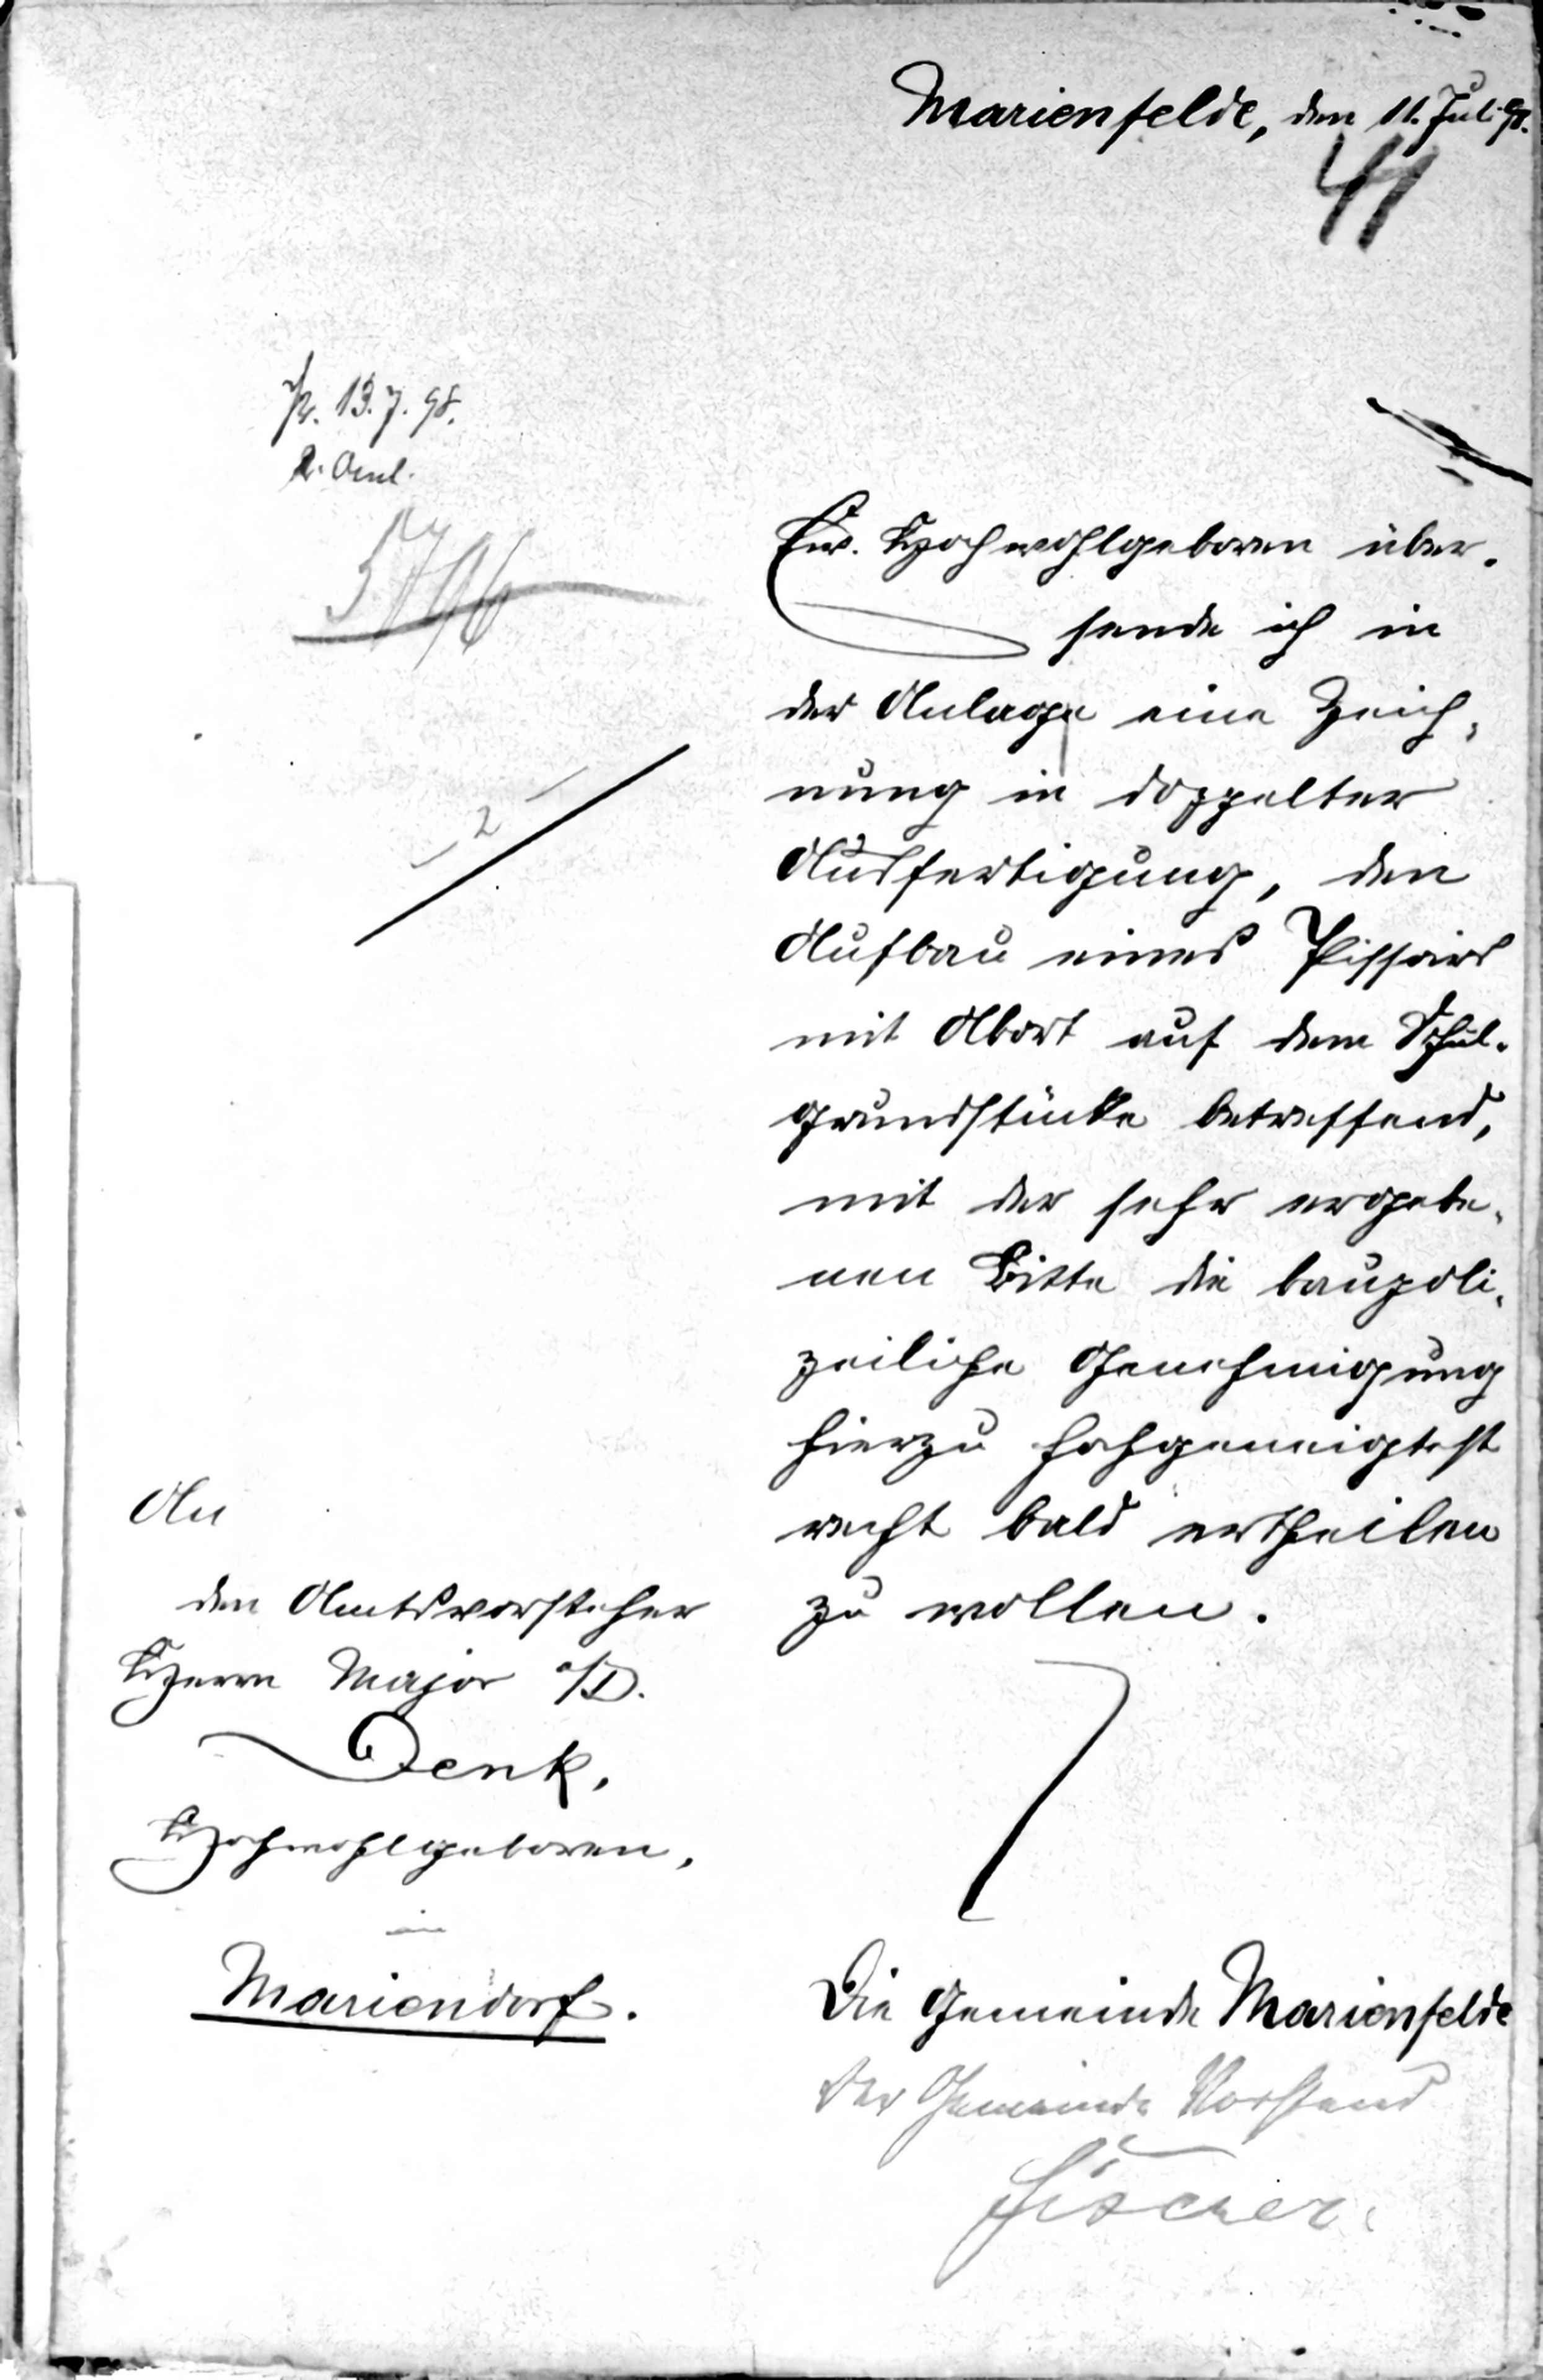 Marienfelde, den 11. Juli 98.
41
Pr. 13.7.98.
2. Anl.
5796
2
Ew. Hochwohlgeboren über-
sende ich in
der Anlage eine Zeich-
nung in doppelter
Ausfertigung, den
Aufbau eines Pissoirs
mit Abort auf dem Schul-
grundstücke betreffend,
mit der sehr ergebe-
nen Bitte die baupoli-
zeiliche Genehmigung
hierzu hochgeneigtest
recht bald ertheilen
zu wollen.
An
den Amtsvorsteher
Herrn Major a/D.
Denk,
Hochwohlgeboren,
in
Mariendorf.
Die Gemeinde Marienfelde
Der Gemeinde Vorstand
Fischer.